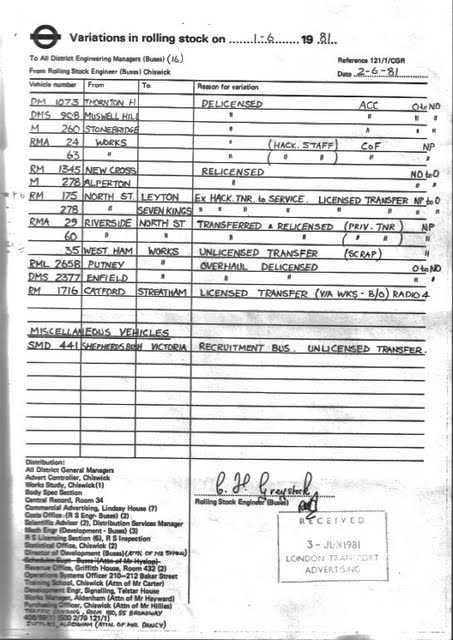 Variations in rolling stock on ......1-6......... 19 .81...
To All District Engineering Managers (Buses) (16)
Reference 121/1/CGR
From Rolling Stock Engineer (Buses) Chiswick
Date ..2-6-81
Vehicle number From To Reason for variation
DM 1073 THORNTON H DELICENSED ACC O to ND
DMS 908 MUSWELL HILL " " "
M 260 STONEBRIDGE " " "
RMA 24 WORKS " (HACK. STAFF) CoF NP
63 " " ( " " ) " "
RM 1345 NEW CROSS RELICENSED ND to O
M 278 ALPERTON " "
RM 175 NORTH ST. LEYTON EX HACK. TNR. to SERVICE. LICENSED TRANSFER NP to O
278 " SEVEN KINGS " " " " " " "
RMA 29 RIVERSIDE NORTH ST TRANSFERRED & RELICENSED (PRIV. TNR) NP
60 " " " " ( " " ) "
35 WEST HAM WORKS UNLICENSED TRANSFER (SCRAP) "
RML 2658 PUTNEY " OVERHAUL DELICENSED O to ND
DMS 2377 ENFIELD " " " "
RM 1716 CATFORD STREATHAM LICENSED TRANSFER (VIA WKS - B/O) RADIO 4
MISCELLANEOUS VEHICLES
SMD 441 SHEPHERDS BUSH VICTORIA RECRUITMENT BUS. UNLICENSED TRANSFER.
Distribution:
All District General Managers
Advert Controller, Chiswick
Works Study, Chiswick (1)
Body Spec Section
Central Record, Room 34
Commercial Advertising, Lindsay House (7)
Costs Office (R S Engr- Buses) (2)
Scientific Adviser (2), Distribution Services Manager
Mech Engr (Development - Buses) (3)
R S Licensing Section (6), R S Inspection
Statistical Office, Chiswick (2)
Director of Development (Buses)
Schedules Supt - Buses (Attn of Mr Hyslop)
Revenue Office, Griffith House, Room 432 (2)
Operations Systems Officer 210-212 Baker Street
Training School, Chiswick (Attn of Mr Carter)
Development Engr, Signalling, Telstar House
Works Manager, Aldenham (Attn of Mr Hayward)
Purchasing Officer, Chiswick (Attn of Mr Hillies)
TRAFFIC COSTING, ROOM 55 BROADWAY
(500 2/79 121/1)
SUPPLIES, ALDENHAM (ATTN. OF MR DANCY)
Rolling Stock Engineer (Buses)
RECEIVED
3 - JUN 1981
LONDON TRANSPORT
ADVERTISING